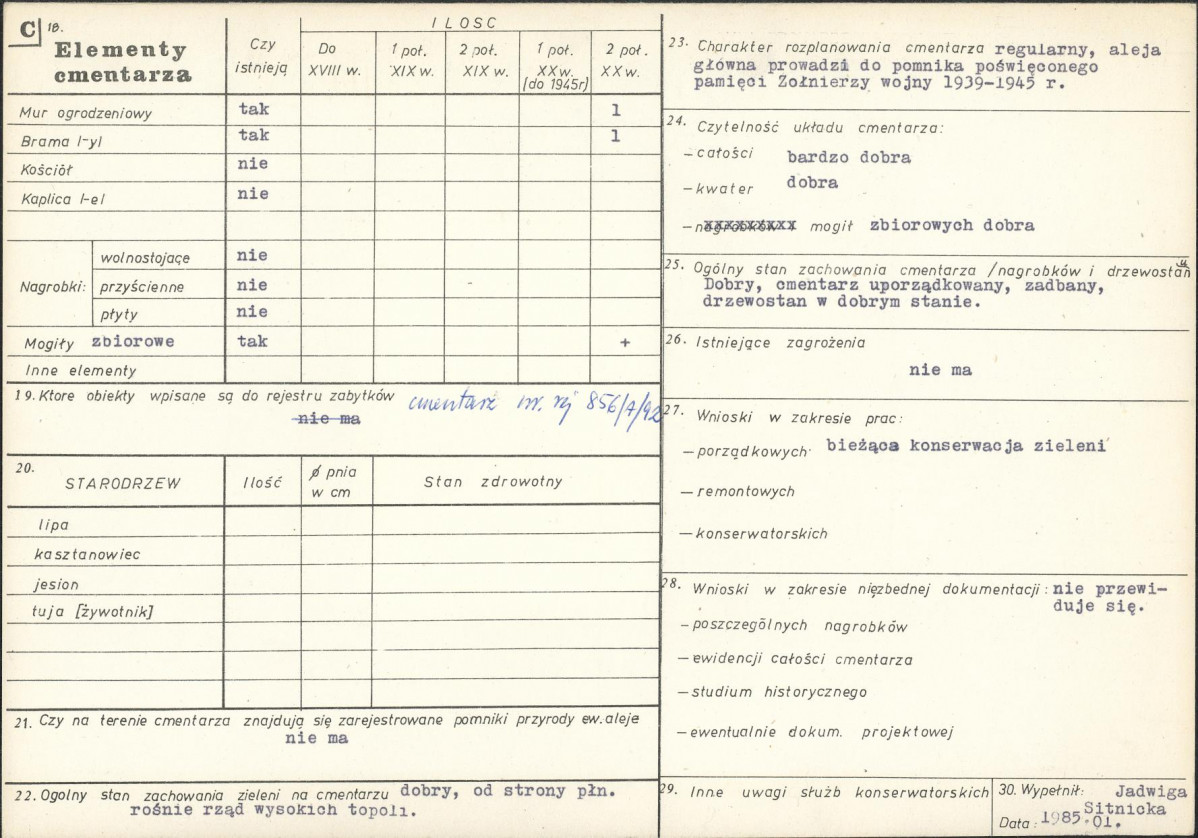 C 18.
Elementy
cmentarza
Czy
istnieją
ILOSC
Do
XVIII w.
1 poł.
XIX w.
2 poł.
XIX w.
1 poł.
XX w.
[do 1945r]
2 poł.
XX w.
Mur ogrodzeniowy tak 1
Brama l-yl tak 1
Kościół nie
Kaplica l-el nie
Nagrobki:
wolnostojące nie
przyścienne nie
płyty nie
Mogiły zbiorowe tak +
Inne elementy
19. Ktore obiekty wpisane są do rejestru zabytków cmentarz nr. rej 856/A/92
nie ma
20.
STARODRZEW Ilość ø pnia
w cm Stan zdrowotny
lipa
kasztanowiec
jesion
tuja [żywotnik]
21. Czy na terenie cmentarza znajdują się zarejestrowane pomniki przyrody ew. aleje
nie ma
22. Ogolny stan zachowania zieleni na cmentarzu dobry, od strony płn.
rośnie rząd wysokich topoli.
23. Charakter rozplanowania cmentarza regularny, aleja
główna prowadzi do pomnika poświęconego
pamięci Żołnierzy wojny 1939-1945 r.
24. Czytelność układu cmentarza:
– całości bardzo dobra
– kwater dobra
– nagrobków i mogił zbiorowych dobra
25. Ogólny stan zachowania cmentarza /nagrobków i drzewostanu
Dobry, cmentarz uporządkowany, zadbany,
drzewostan w dobrym stanie.
26. Istniejące zagrożenia
nie ma
27. Wnioski w zakresie prac:
– porządkowych bieżąca konserwacja zieleni
– remontowych
– konserwatorskich
28. Wnioski w zakresie niezbednej dokumentacji: nie przewi-
duje się.
– poszczególnych nagrobków
– ewidencji całości cmentarza
– studium historycznego
– ewentualnie dokum. projektowej
29. Inne uwagi służb konserwatorskich
30. Wypełnił: Jadwiga
Sitnicka
Data: 1985.01.